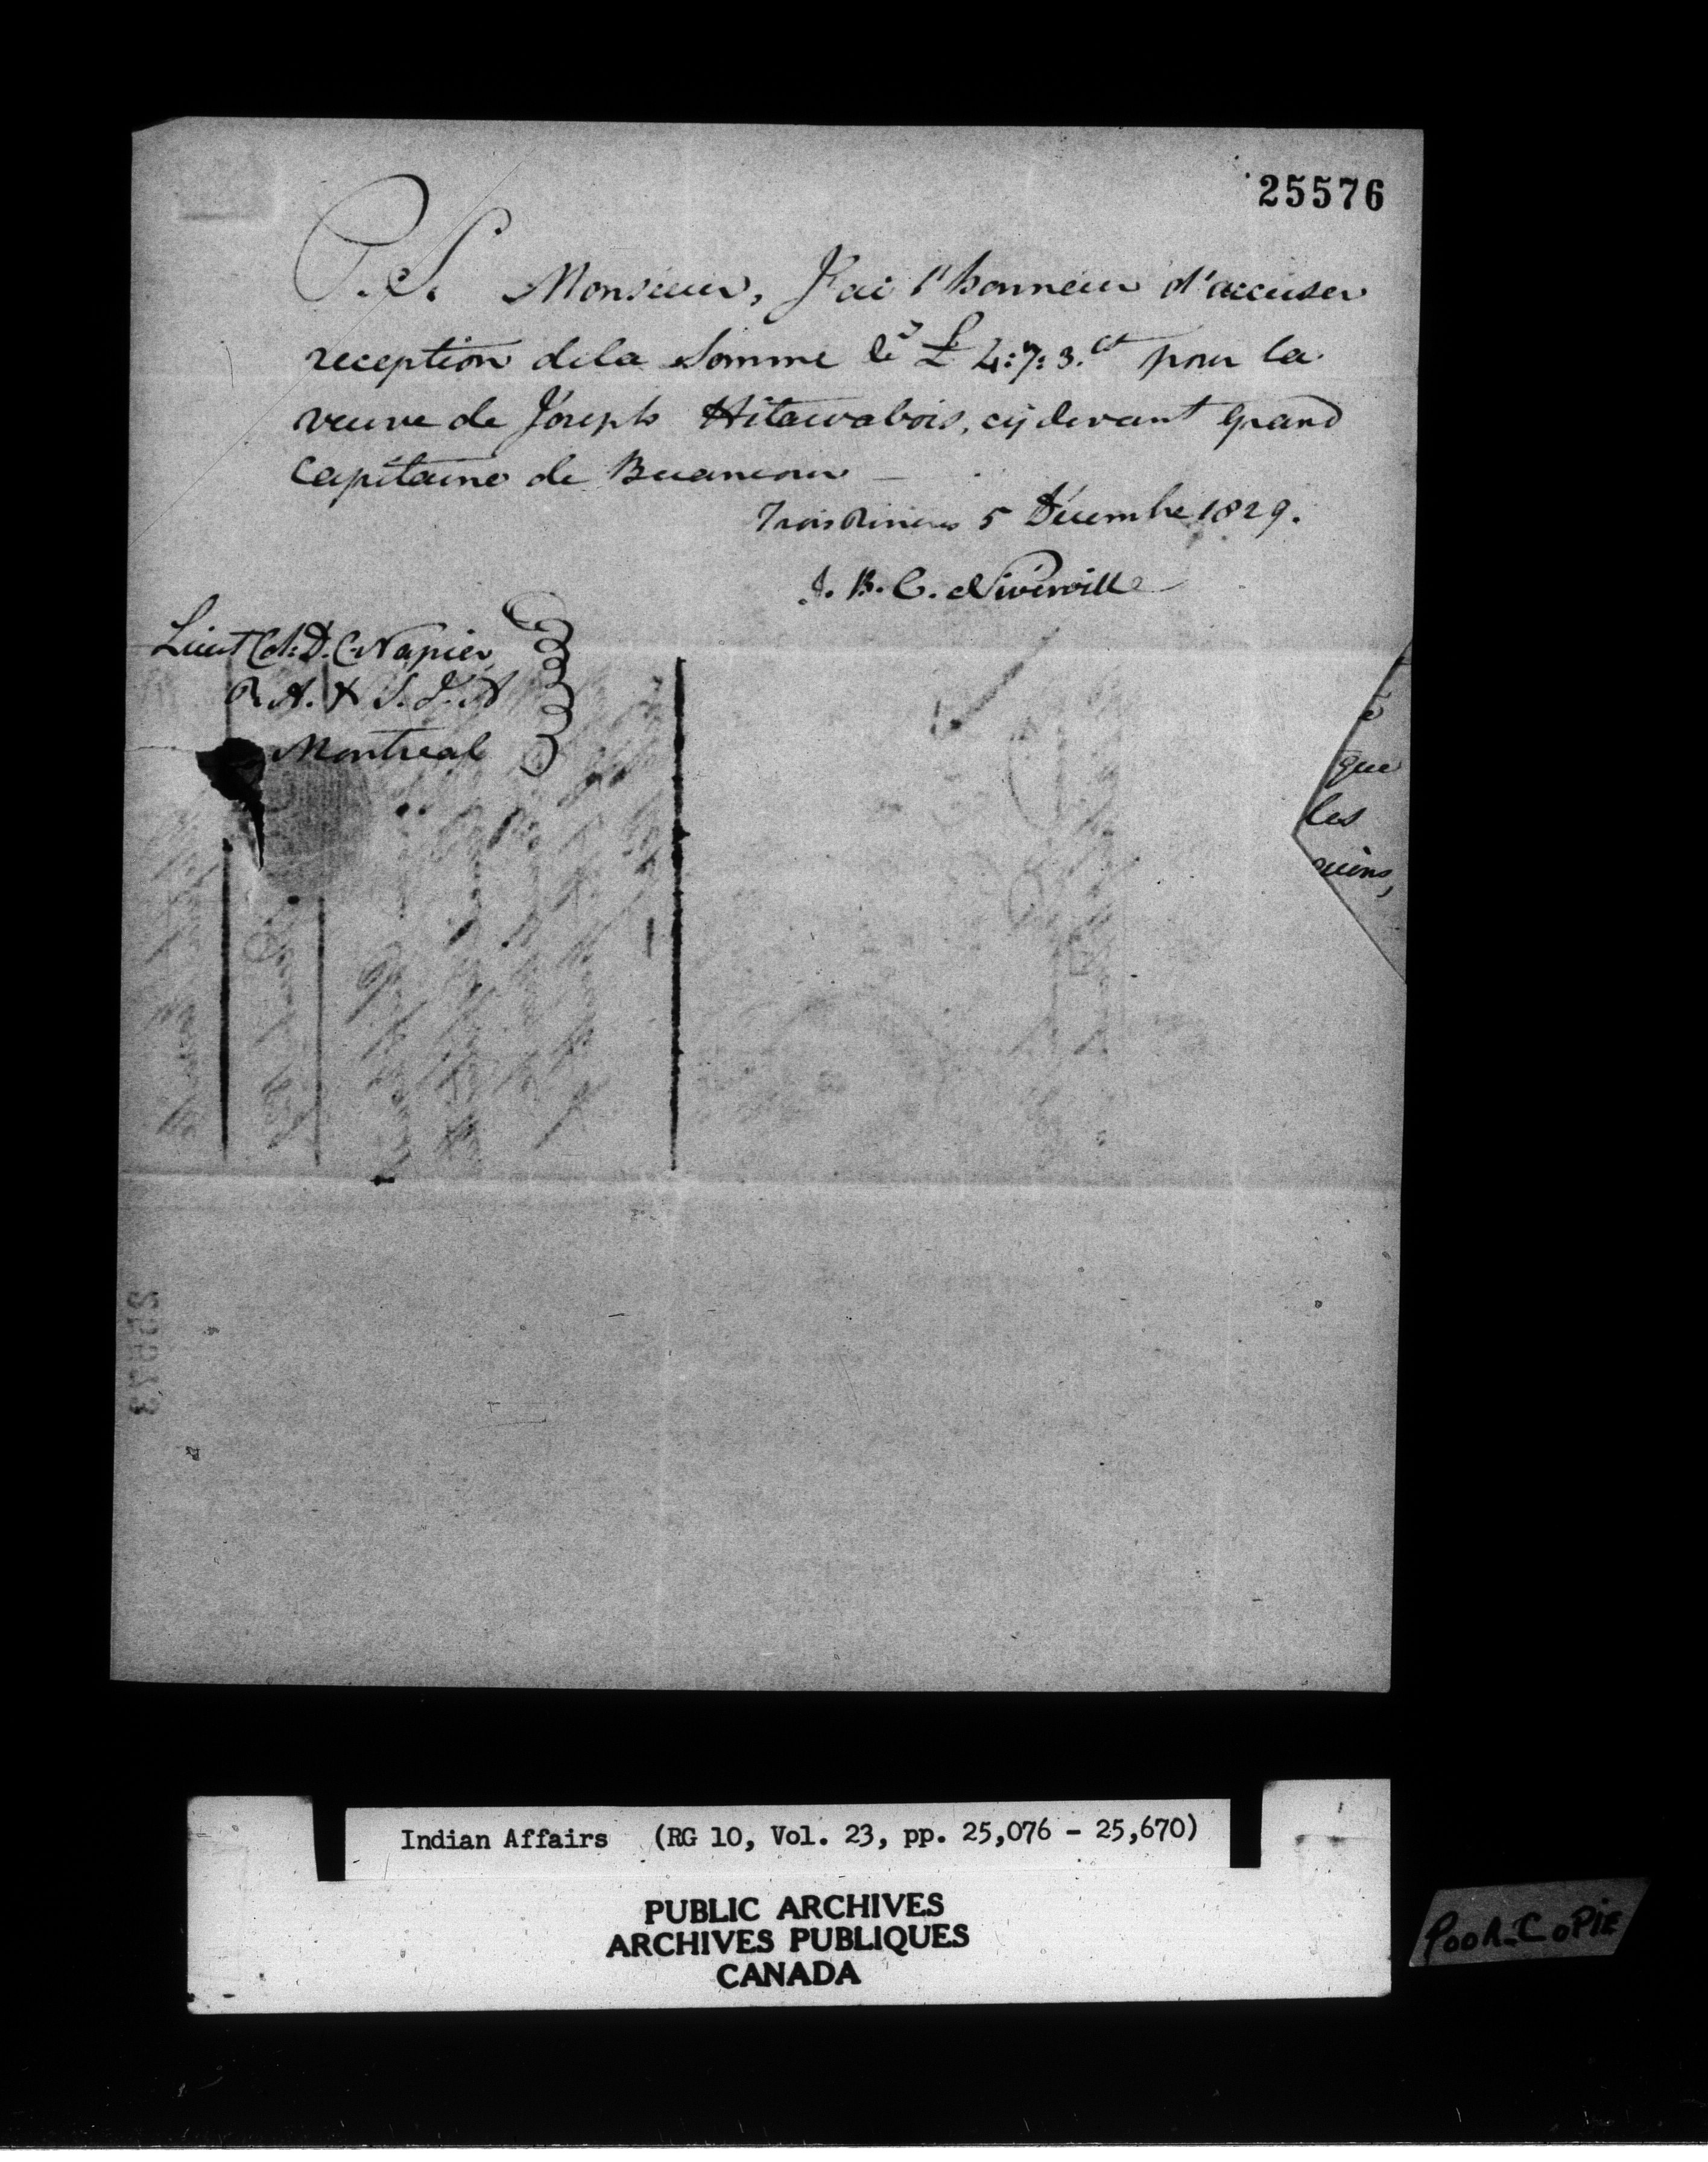 25576
P.S. Monsieur, J'ai l'honneur d'accuser
reception dela Somme de £ 4:7:3. Ct pour la
veuve de Joseph Hitawabois, cÿ devant grand
Capitaine de Becancour
Trois Rivieres 5 Décembre 1829.
J. B. C. Niverville
Lieut Col: D. C. Napier
R. A. & S. I. A
Montreal
que
les
Indian Affairs (RG 10, Vol. 23, pp. 25,076 - 25,670)
PUBLIC ARCHIVES
ARCHIVES PUBLIQUES
CANADA
POOR COPIE